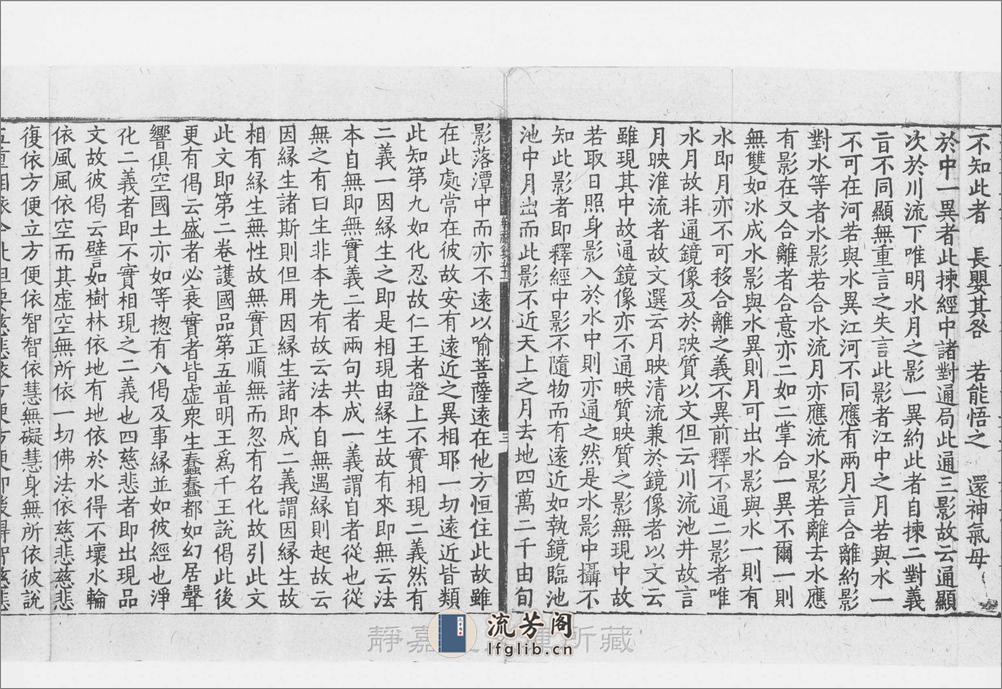 不知此者 長嬰其咎 若能悟之 還神氣母
於中一異者此揀經中諸對通局此通三影故云通顯
次於川流下唯明水月之影一異約此者自揀二對義
言不同顯無重言之失言此影者江中之月若與水一
不可在河若與水異江河不同應有兩月言合離約影
對水等者水影若合水流月亦應流水影若離去水應
有影在又合離者合意亦二如二掌合一異不爾一則
無雙如冰成水影與水異則月可出水影與水一則有
水即月亦不可移合離之義不異前釋不通二影者唯
水月故非通鏡像及於映質以文但云川流池井故言
月映淮流者故文選云月映清流兼於鏡像者以文云
雖現其中故通鏡像亦不通映質映質之影無現中故
若取日照身影入於水中則亦通之然是水影中攝不
知此影者即釋經中影不隨物而有遠近如執鏡臨池
池中月出而此影不近天上之月去地四萬二千由旬
影落潭中而亦不遠以喻菩薩遠在他方恒住此故雖
在此處常在彼故安有遠近之異相耶一切遠近皆類
此知第九如化忍故仁王者證上不實相現二義然有
二義一因緣生之即是相現由緣生故有來即無云法
本自無即無實義二者兩句共成一義謂自者從也從
無之有曰生非本先有故云法本自無遇緣則起故云
因緣生諸斯則但用因緣生諸即成二義謂因緣生故
相有緣生無性故無實正順無而忽有名化故引此文
此文即第二卷護國品第五普明王為千王說偈此後
更有偈云盛者必衰實者皆虛衆生蠢蠢都如幻居聲
響俱空國土亦如等揔有八偈及事緣並如彼經也淨
化二義者即不實相現之二義也四慈悲者即出現品
文故彼偈云譬如樹林依地有地依於水得不壞水輪
依風風依空而其虛空無所依一切佛法依慈悲慈悲
復依方便立方便依智智依慧無礙慧身無所依彼說
三
静嘉 所藏
流芳阁
lfglib.cn